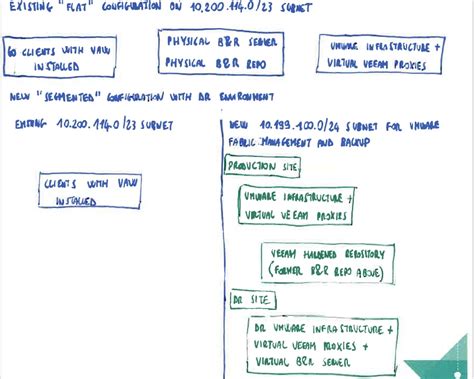 EXISTING "FLAT" CONFIGURATION ON 10.200.114.0/23 SUBNET
60 CLIENTS WITH VAW
INSTALLED
PHYSICAL B&R SERVER
PHYSICAL B&R REPO
VMWARE INFRASTRUCTURE +
VIRTUAL VEEAM PROXIES
NEW "SEGMENTED" CONFIGURATION WITH DR ENVIRONMENT
EXISTING 10.200.114.0/23 SUBNET
CLIENTS WITH VAW
INSTALLED
NEW 10.199.100.0/24 SUBNET FOR VMWARE
FABRIC MANAGEMENT AND BACKUP
PRODUCTION SITE
VMWARE INFRASTRUCTURE +
VIRTUAL VEEAM PROXIES
VEEAM HARDENED REPOSITORY
(FORMER B&R REPO ABOVE)
DR SITE
DR VMWARE INFRASTRUCTURE +
VIRTUAL VEEAM PROXIES +
VIRTUAL B&R SERVER